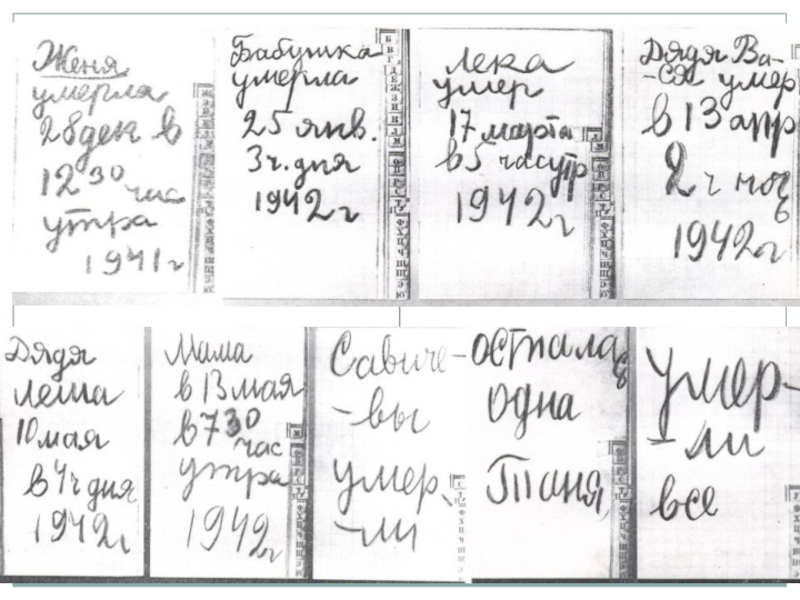 Женя
умерла
28 дек в
12 30 час
утра
1941 г
Бабушка
умерла
25 янв.
3 ч. дня
1942 г
Лека
умер
17 марта
в 5 часутр
1942 г
Дядя Ва-
-ся умер
в 13 апр
2 ч ноч
1942 г
Дядя
Леша
10 мая
в 4 ч дня
1942 г
Мама
в 13 мая
в 7 30
час
утра
1942 г
Савиче-
-вы
умер
-ли
осталась
одна
Таня
Умер-
-ли
все